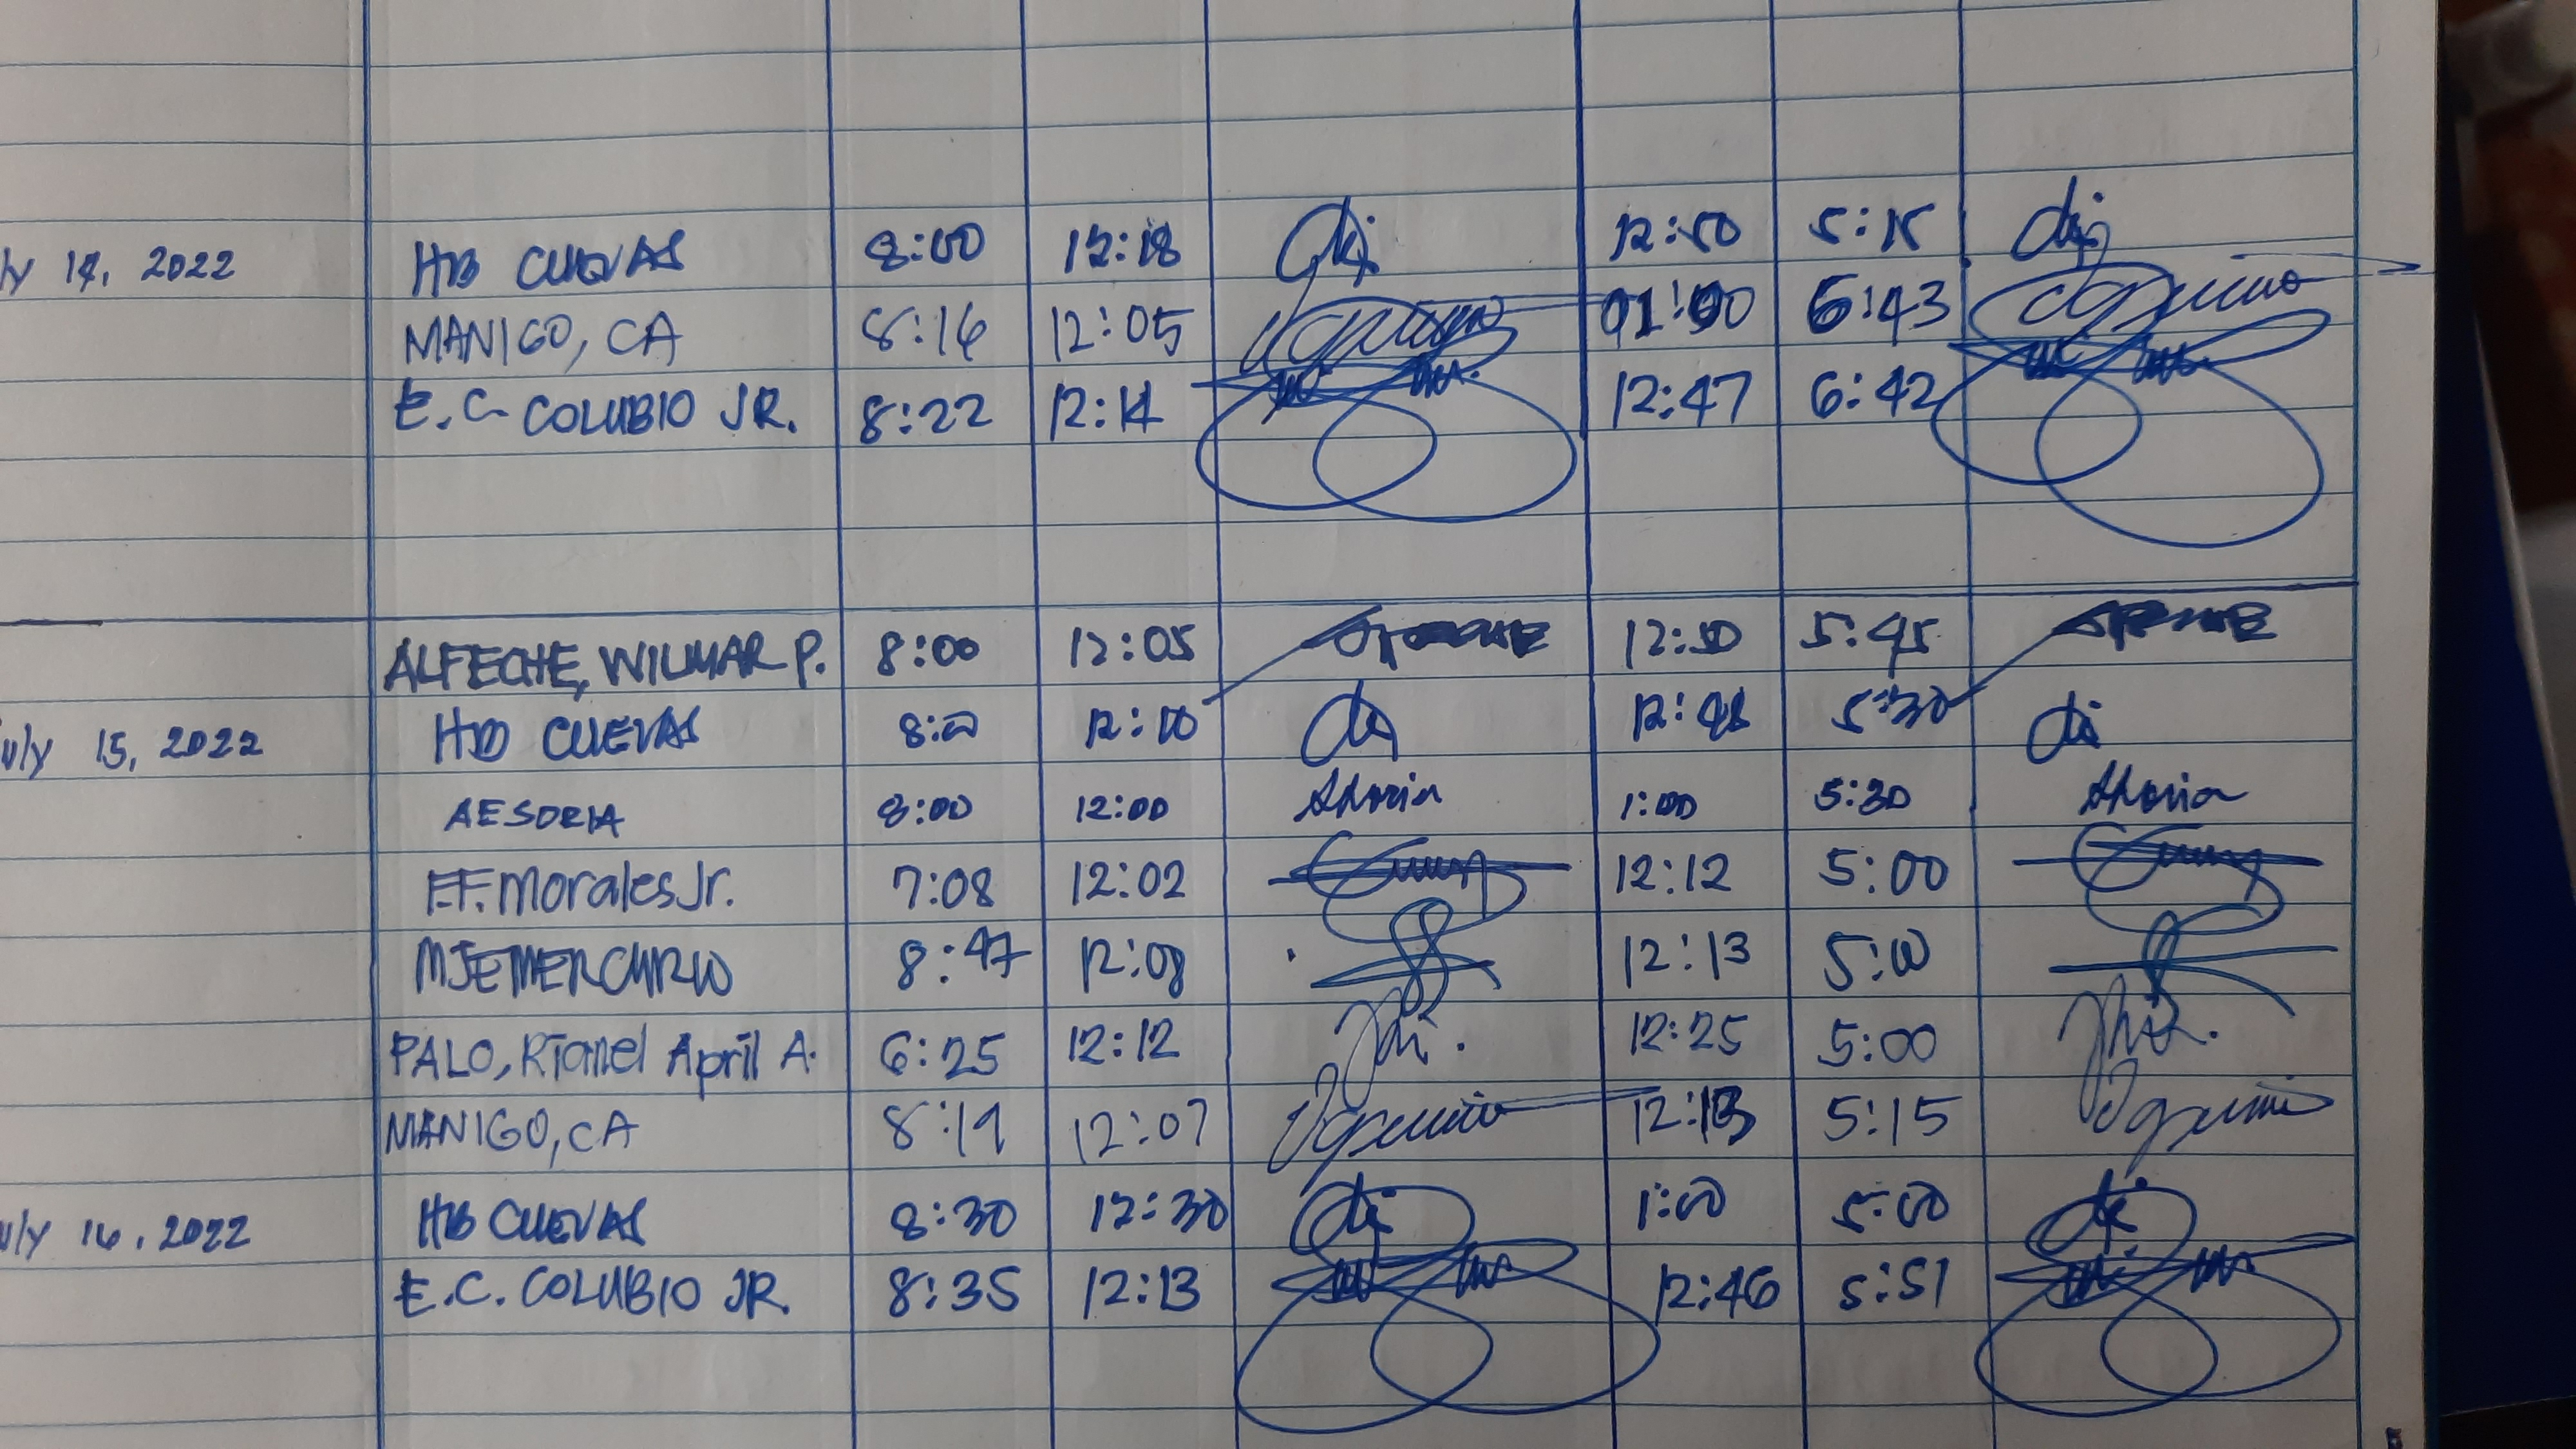 ly 14, 2022 HB CUEVAS 8:00 12:18 12:50 5:15
MANIGO, CA 8:16 12:05 01:00 6:43
E.C. COLUBIO JR. 8:22 12:14 12:47 6:42
ALFECHE, WILMAR P. 8:00 12:05 12:50 5:45
uly 15, 2022 HB CUEVAS 8:00 12:10 12:48 5:30
AESORIA 8:00 12:00 1:00 5:30
E.F. Morales Jr. 7:08 12:02 12:12 5:00
MJEMERCURIO 8:47 12:08 12:13 5:00
PALO, Rianel April A. 6:25 12:12 12:25 5:00
MANIGO, CA 8:19 12:07 12:13 5:15
uly 16, 2022 HB CUEVAS 8:30 12:30 1:00 5:00
E.C. COLUBIO JR. 8:35 12:13 12:46 5:51